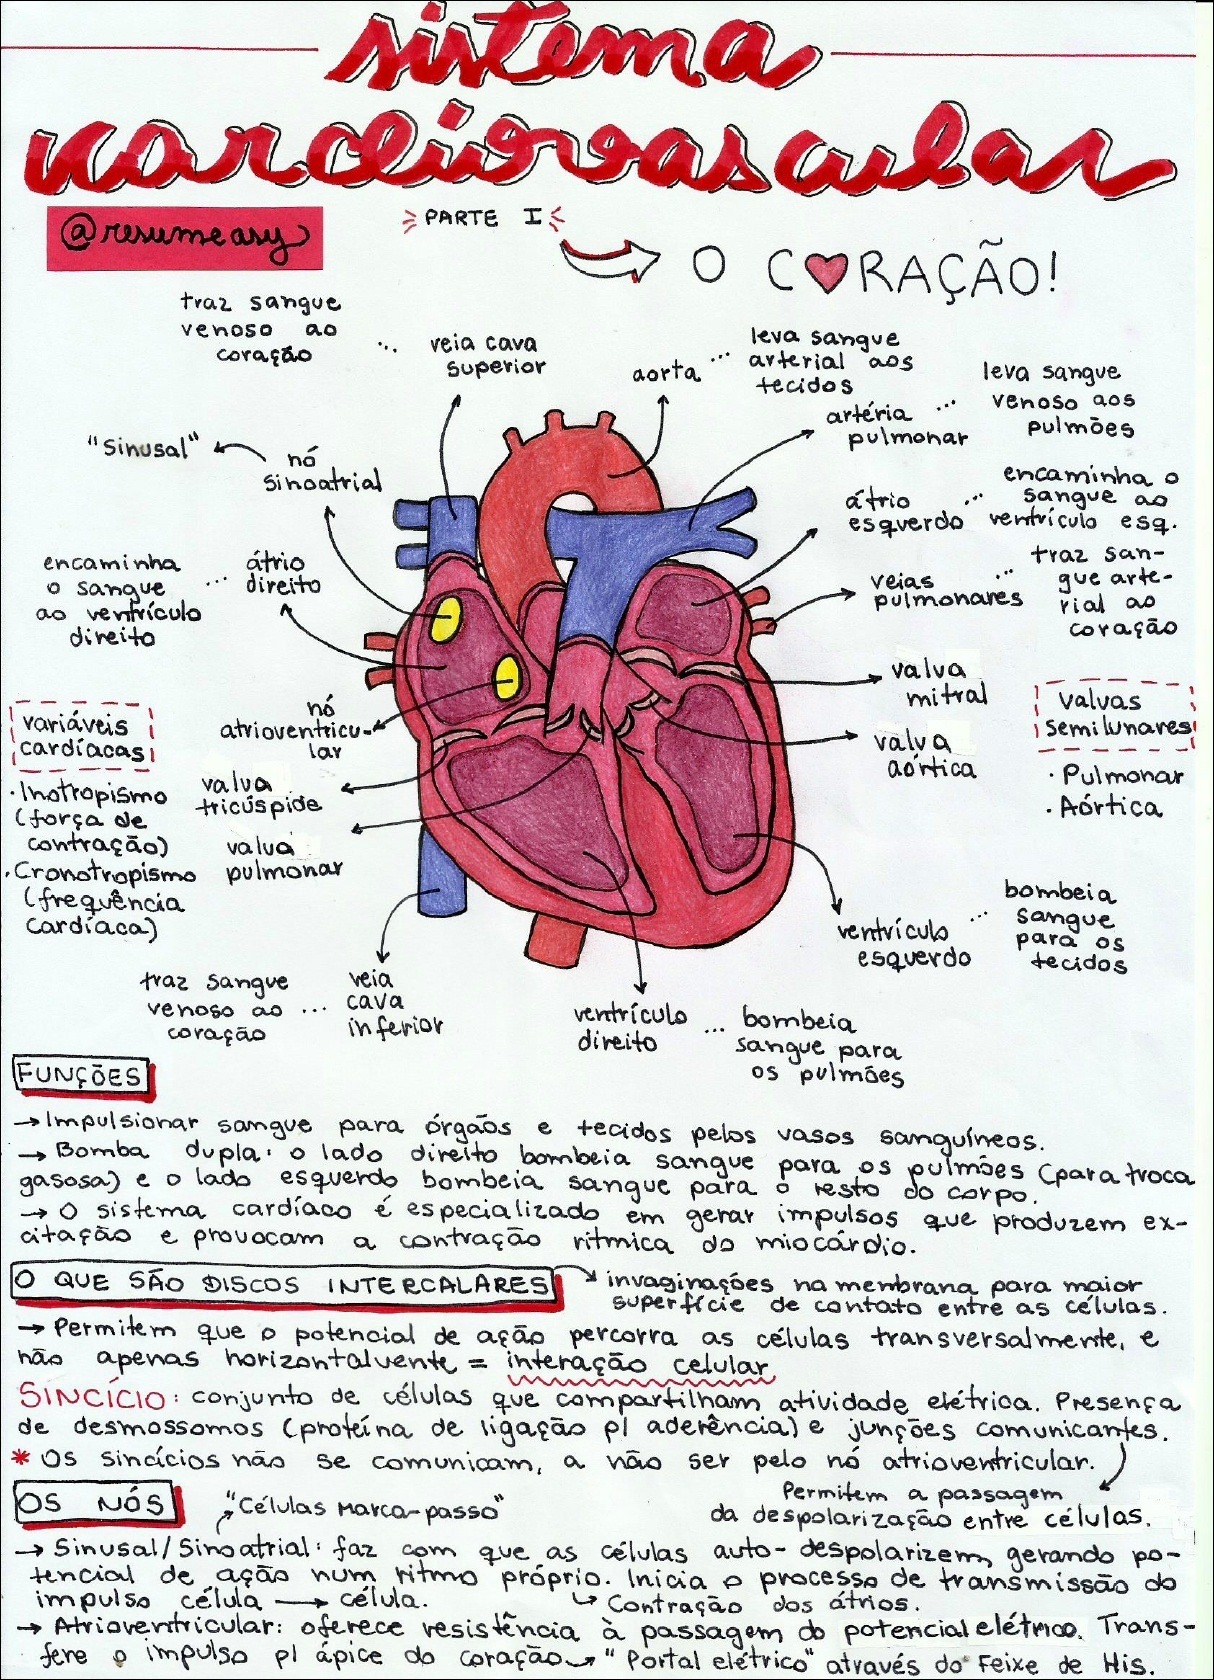 sistema
cardiovascular
@resumeasy
PARTE I
O CORAÇÃO!
traz sangue
venoso ao
coração
...
veia cava
superior
aorta
...
leva sangue
arterial aos
tecidos
artéria
pulmonar
...
leva sangue
venoso aos
pulmões
"Sinusal"
nó
sinoatrial
átrio
esquerdo
...
encaminha o
sangue ao
ventrículo esq.
encaminha
o sangue
ao ventrículo
direito
...
átrio
direito
veias
pulmonares
...
traz san-
gue arte-
rial ao
coração
valva
mitral
valvas
semilunares
· Pulmonar
· Aórtica
variáveis
cardíacas
· Inotropismo
(força de
contração)
· Cronotropismo
(frequência
cardíaca)
nó
atrioventricu-
lar
valva
aórtica
valva
tricúspide
valva
pulmonar
ventrículo
esquerdo
...
bombeia
sangue
para os
tecidos
traz sangue
venoso ao
coração
...
veia
cava
inferior
ventrículo
direito
...
bombeia
sangue para
os pulmões
FUNÇÕES
→ Impulsionar sangue para órgãos e tecidos pelos vasos sanguíneos.
→ Bomba dupla: o lado direito bombeia sangue para os pulmões (para troca
gasosa) e o lado esquerdo bombeia sangue para o resto do corpo.
→ O sistema cardíaco é especializado em gerar impulsos que produzem ex-
citação e provocam a contração rítmica do miocárdio.
O QUE SÃO DISCOS INTERCALARES
invaginações na membrana para maior
superfície de contato entre as células.
→ Permitem que o potencial de ação percorra as células transversalmente, e
não apenas horizontalvente = interação celular
SINCÍCIO: conjunto de células que compartilham atividade elétrica. Presença
de desmossomos (proteína de ligação p/ aderência) e junções comunicantes.
* Os sincícios não se comunicam, a não ser pelo nó atrioventricular.
Permitem a passagem
da despolarização entre células.
OS NÓS
"Células Marca-passo"
→ Sinusal/Sinoatrial: faz com que as células auto-despolarizem, gerando po-
tencial de ação num ritmo próprio. Inicia o processo de transmissão do
impulso célula → célula.
Contração dos átrios.
→ Atrioventricular: oferece resistência à passagem do potencial elétrico. Trans-
fere o impulso p/ ápice do coração → "Portal elétrico" através do Feixe de His.